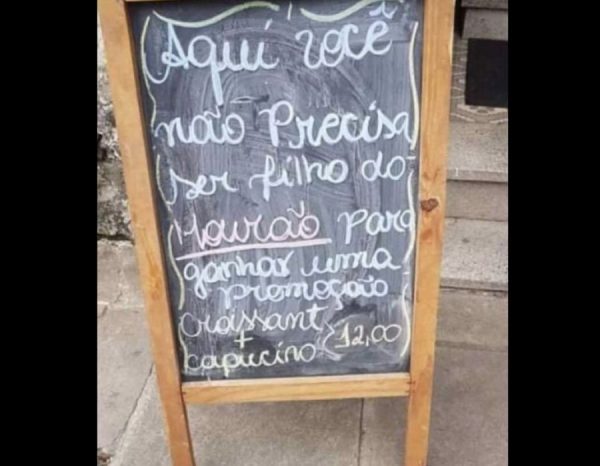 Aqui você
não Precisa
ser filho do
Mourão Para
ganhar uma
promoção
Croissant
+ 12,00
Capucino